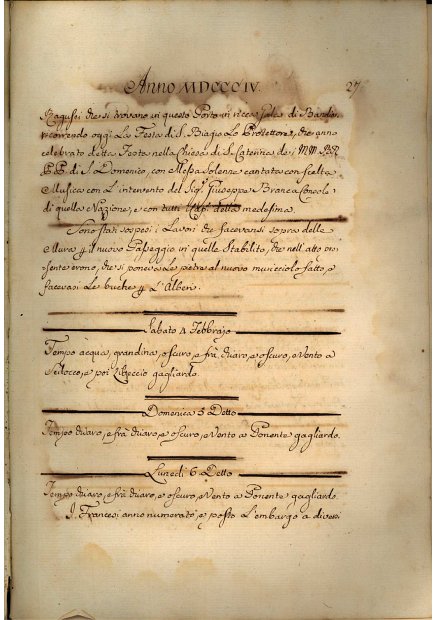 Anno MDCCCIV. 27
Ragusei che si trovano in questo Porto in ricca gala di Bandiere
ricorrendo oggi La Festa di S. Biagio Lo Protettore, che anno
celebrato detta Festa nella Chiesa di S. Caterina de MM. RR.
PP. di S. Domenico, con Messa Solenne cantata con scelta
Musica con L'intervento del Sigr. Giuseppe Branca Console
di quella Nazione, e con tutti della medesima.
Sono stati sospesi i Lavori che facevansi sopra delle
Mura il nuovo Passeggio in quelle Stabilito, che nell'atto pre-
sente erono, che si poneva Le pietre al nuovo muricciolo fatto, e
facevasi Le buche L'Alberi.
Sabato 4 Febbrajo
Tempo acqua, grandina, oscuro, e frà chiaro, e oscuro, e Vento a
Scilocco, e poi Libeccio gagliardo.
Domenica 5 Detto
Tempo chiaro, e frà chiaro, e oscuro, e Vento a Ponente gagliardo.
Lunedì 6 Detto
Tempo chiaro, e frà chiaro, e oscuro, e Vento a Ponente gagliardo.
I Francesi anno numerato, e posto L'embargo a diversi